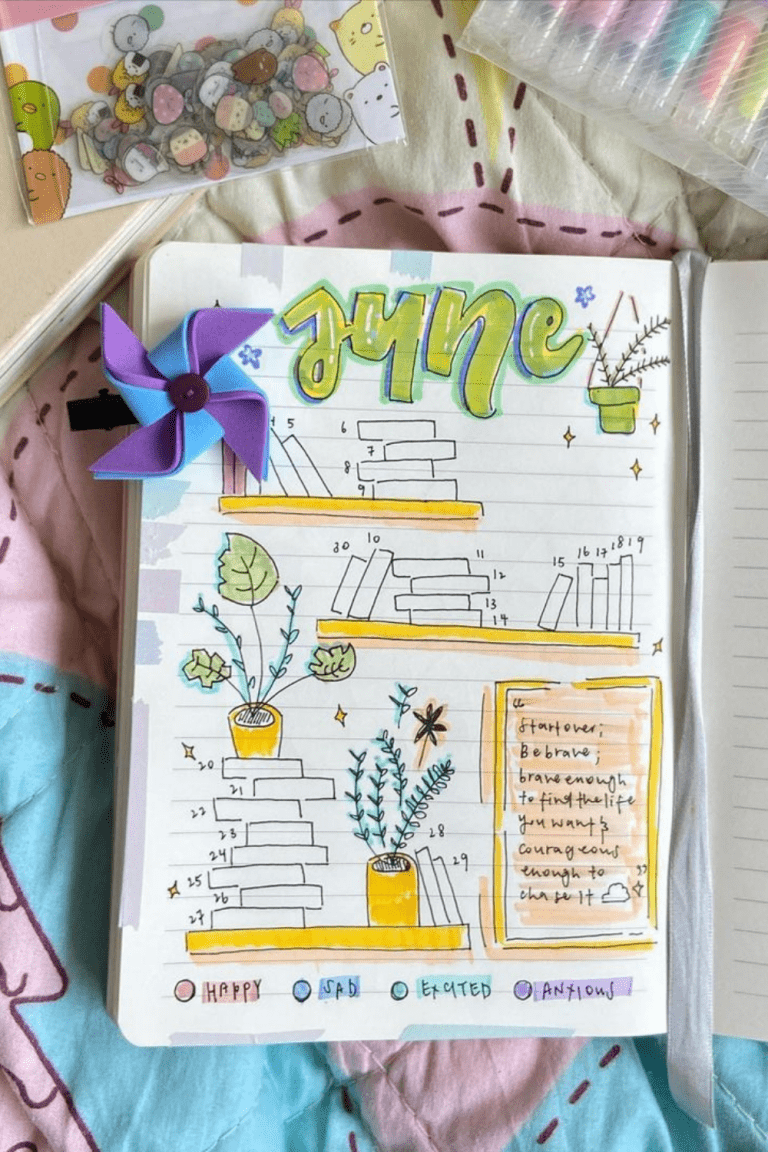 June
4 5
6
7
8
9
20 10
11
12
13
14
15 16 17 18 19
20
21
22
23
24
25
26
27
28
29
"
Start over;
Be brave;
brave enough
to find the life
you want &
courageous
enough to "
chase it
HAPPY SAD EXCITED ANXIOUS